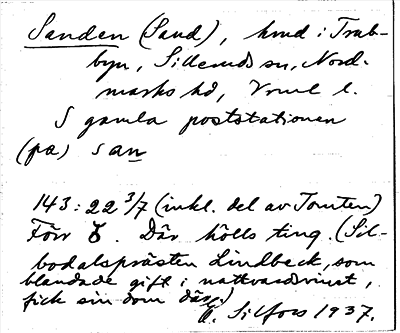 Sanden (Sand), hmd i Trab-
byn, Silleruds sn, Nord-
marks hd, Vrml l.
S gamla poststationen
(pa) san
143:22 3/7 (inkl. del av Tomten)
Förr. Där hölls ting. (Sil-
bodalsprästen Lindbeck, som
blandade gift i nattvardsvinet,
fick sin dom där.)
E. Silfors 1937.